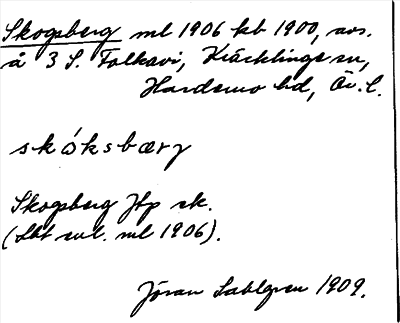 Skogsberg ml 1906 kb 1900, avs.
å 3 S. Falkavi, Kräcklinge sn,
Hardemo hd, Ör. l.
skóksbærj
Skogsberg Jfp ek.
(Lht enl. ml 1906).
Jöran Sahlgren 1909.